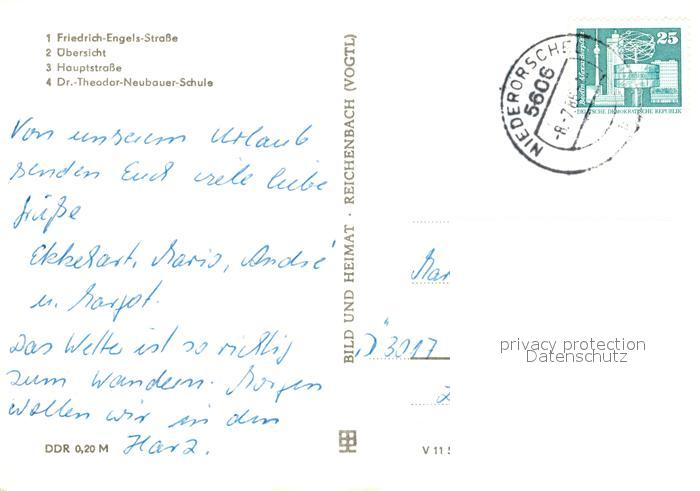 1 Friedrich-Engels-Straße
2 Übersicht
3 Hauptstraße
4 Dr.-Theodor-Neubauer-Schule
Von unserem Urlaub
senden Euch viele liebe
Grüße
Ekkehart, Mario, André
u. Margot.
Das Wetter ist so richtig
zum Wandern. Morgen
wollen wir in den
Harz.
DDR 0,20 M
BILD UND HEIMAT · REICHENBACH (VOGTL)
V 11 5
25
Berlin, Alexanderplatz
DEUTSCHE DEMOKRATISCHE REPUBLIK
NIEDERORSCHEL
5606
Mar
D 3017
privacy protection
Datenschutz